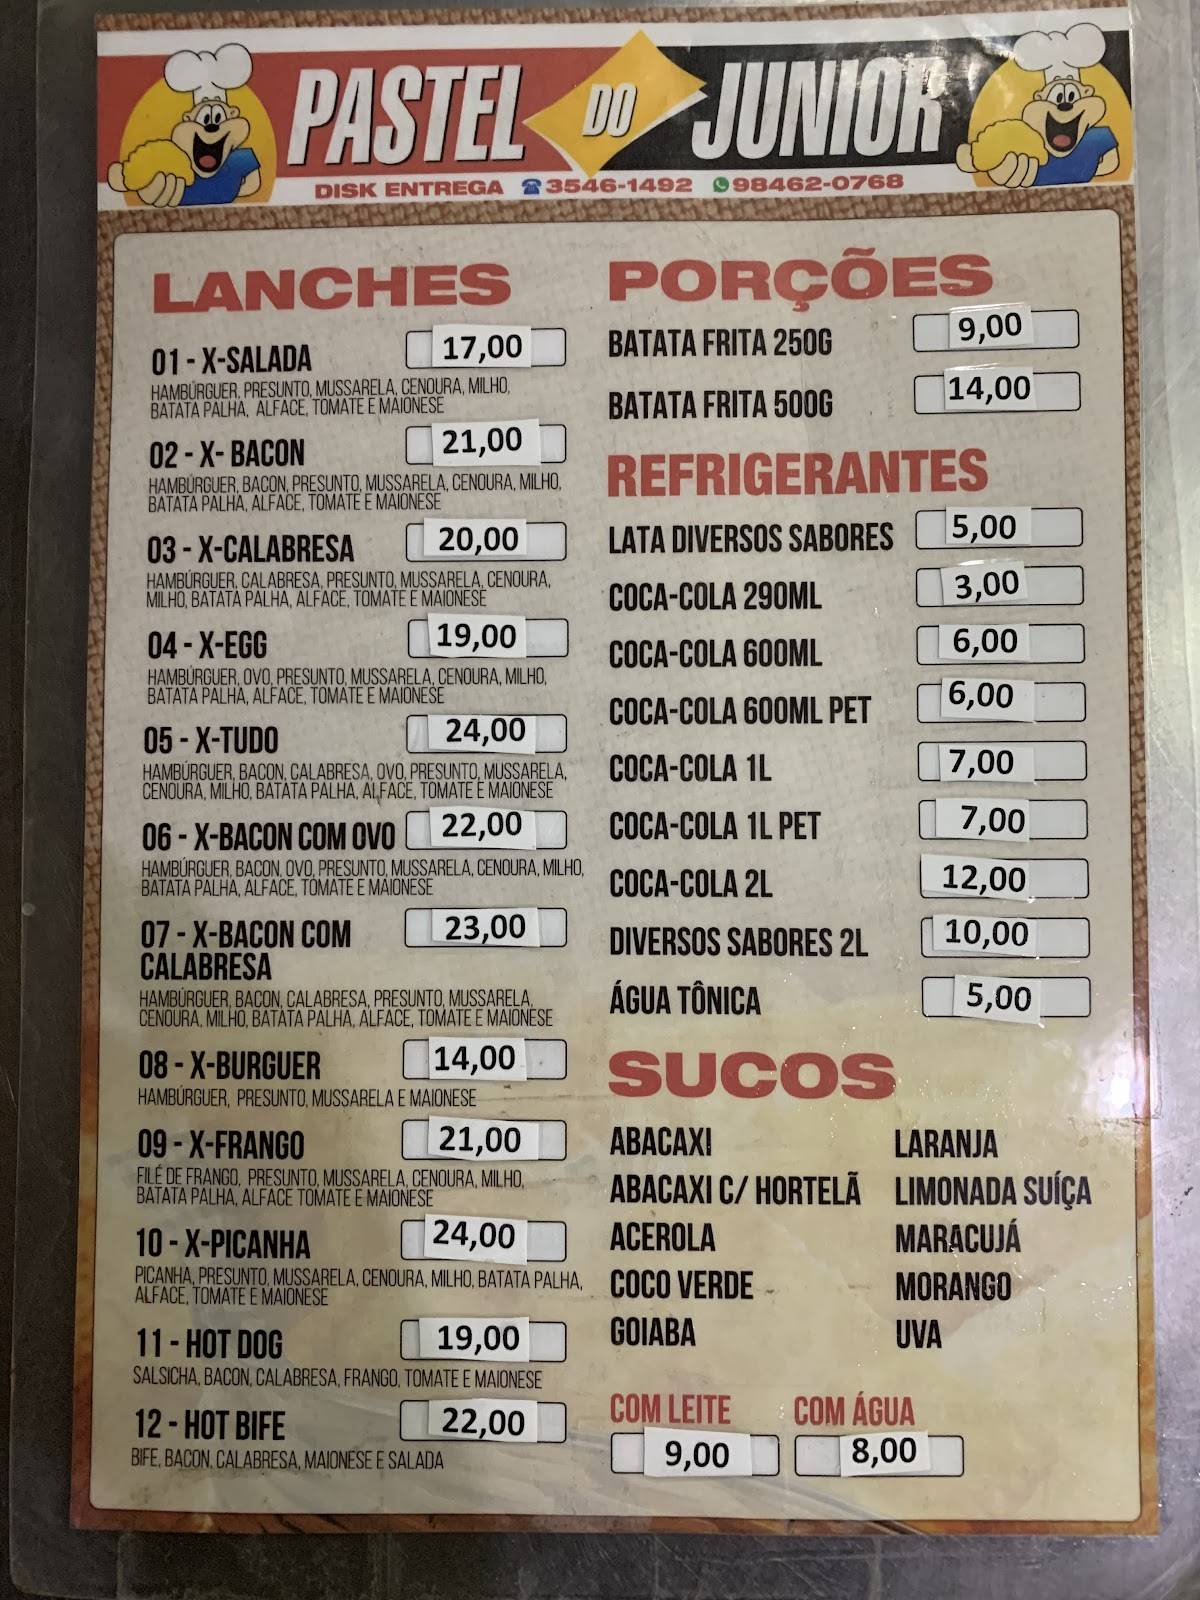 PASTEL DO JUNIOR
DISK ENTREGA 3546-1492 98462-0768
LANCHES
01 - X-SALADA 17,00
HAMBÚRGUER, PRESUNTO, MUSSARELA, CENOURA, MILHO,
BATATA PALHA, ALFACE, TOMATE E MAIONESE
02 - X- BACON 21,00
HAMBÚRGUER, BACON, PRESUNTO, MUSSARELA, CENOURA, MILHO,
BATATA PALHA, ALFACE, TOMATE E MAIONESE
03 - X-CALABRESA 20,00
HAMBÚRGUER, CALABRESA, PRESUNTO, MUSSARELA, CENOURA,
MILHO, BATATA PALHA, ALFACE, TOMATE E MAIONESE
04 - X-EGG 19,00
HAMBÚRGUER, OVO, PRESUNTO, MUSSARELA, CENOURA, MILHO,
BATATA PALHA, ALFACE, TOMATE E MAIONESE
05 - X-TUDO 24,00
HAMBÚRGUER, BACON, CALABRESA, OVO, PRESUNTO, MUSSARELA,
CENOURA, MILHO, BATATA PALHA, ALFACE, TOMATE E MAIONESE
06 - X-BACON COM OVO 22,00
HAMBÚRGUER, BACON, OVO, PRESUNTO, MUSSARELA, CENOURA, MILHO,
BATATA PALHA, ALFACE, TOMATE E MAIONESE
07 - X-BACON COM 23,00
CALABRESA
HAMBÚRGUER, BACON, CALABRESA, PRESUNTO, MUSSARELA,
CENOURA, MILHO, BATATA PALHA, ALFACE, TOMATE E MAIONESE
08 - X-BURGUER 14,00
HAMBÚRGUER, PRESUNTO, MUSSARELA E MAIONESE
09 - X-FRANGO 21,00
FILÉ DE FRANGO, PRESUNTO, MUSSARELA, CENOURA, MILHO,
BATATA PALHA, ALFACE TOMATE E MAIONESE
10 - X-PICANHA 24,00
PICANHA, PRESUNTO, MUSSARELA, CENOURA, MILHO, BATATA PALHA,
ALFACE, TOMATE E MAIONESE
11 - HOT DOG 19,00
SALSICHA, BACON, CALABRESA, FRANGO, TOMATE E MAIONESE
12 - HOT BIFE 22,00
BIFE, BACON, CALABRESA, MAIONESE E SALADA
PORÇÕES
BATATA FRITA 250G 9,00
BATATA FRITA 500G 14,00
REFRIGERANTES
LATA DIVERSOS SABORES 5,00
COCA-COLA 290ML 3,00
COCA-COLA 600ML 6,00
COCA-COLA 600ML PET 6,00
COCA-COLA 1L 7,00
COCA-COLA 1L PET 7,00
COCA-COLA 2L 12,00
DIVERSOS SABORES 2L 10,00
ÁGUA TÔNICA 5,00
SUCOS
ABACAXI LARANJA
ABACAXI C/ HORTELÃ LIMONADA SUÍÇA
ACEROLA MARACUJÁ
COCO VERDE MORANGO
GOIABA UVA
COM LEITE COM ÁGUA
9,00 8,00